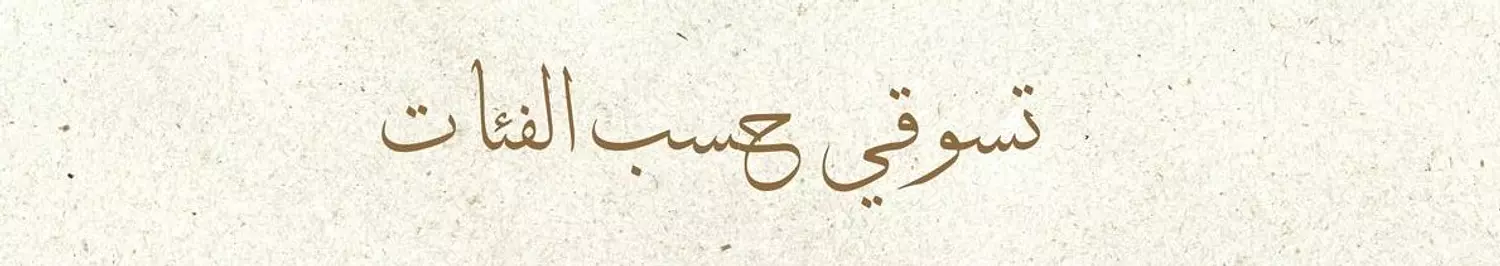 تسوقي حسب الفئات